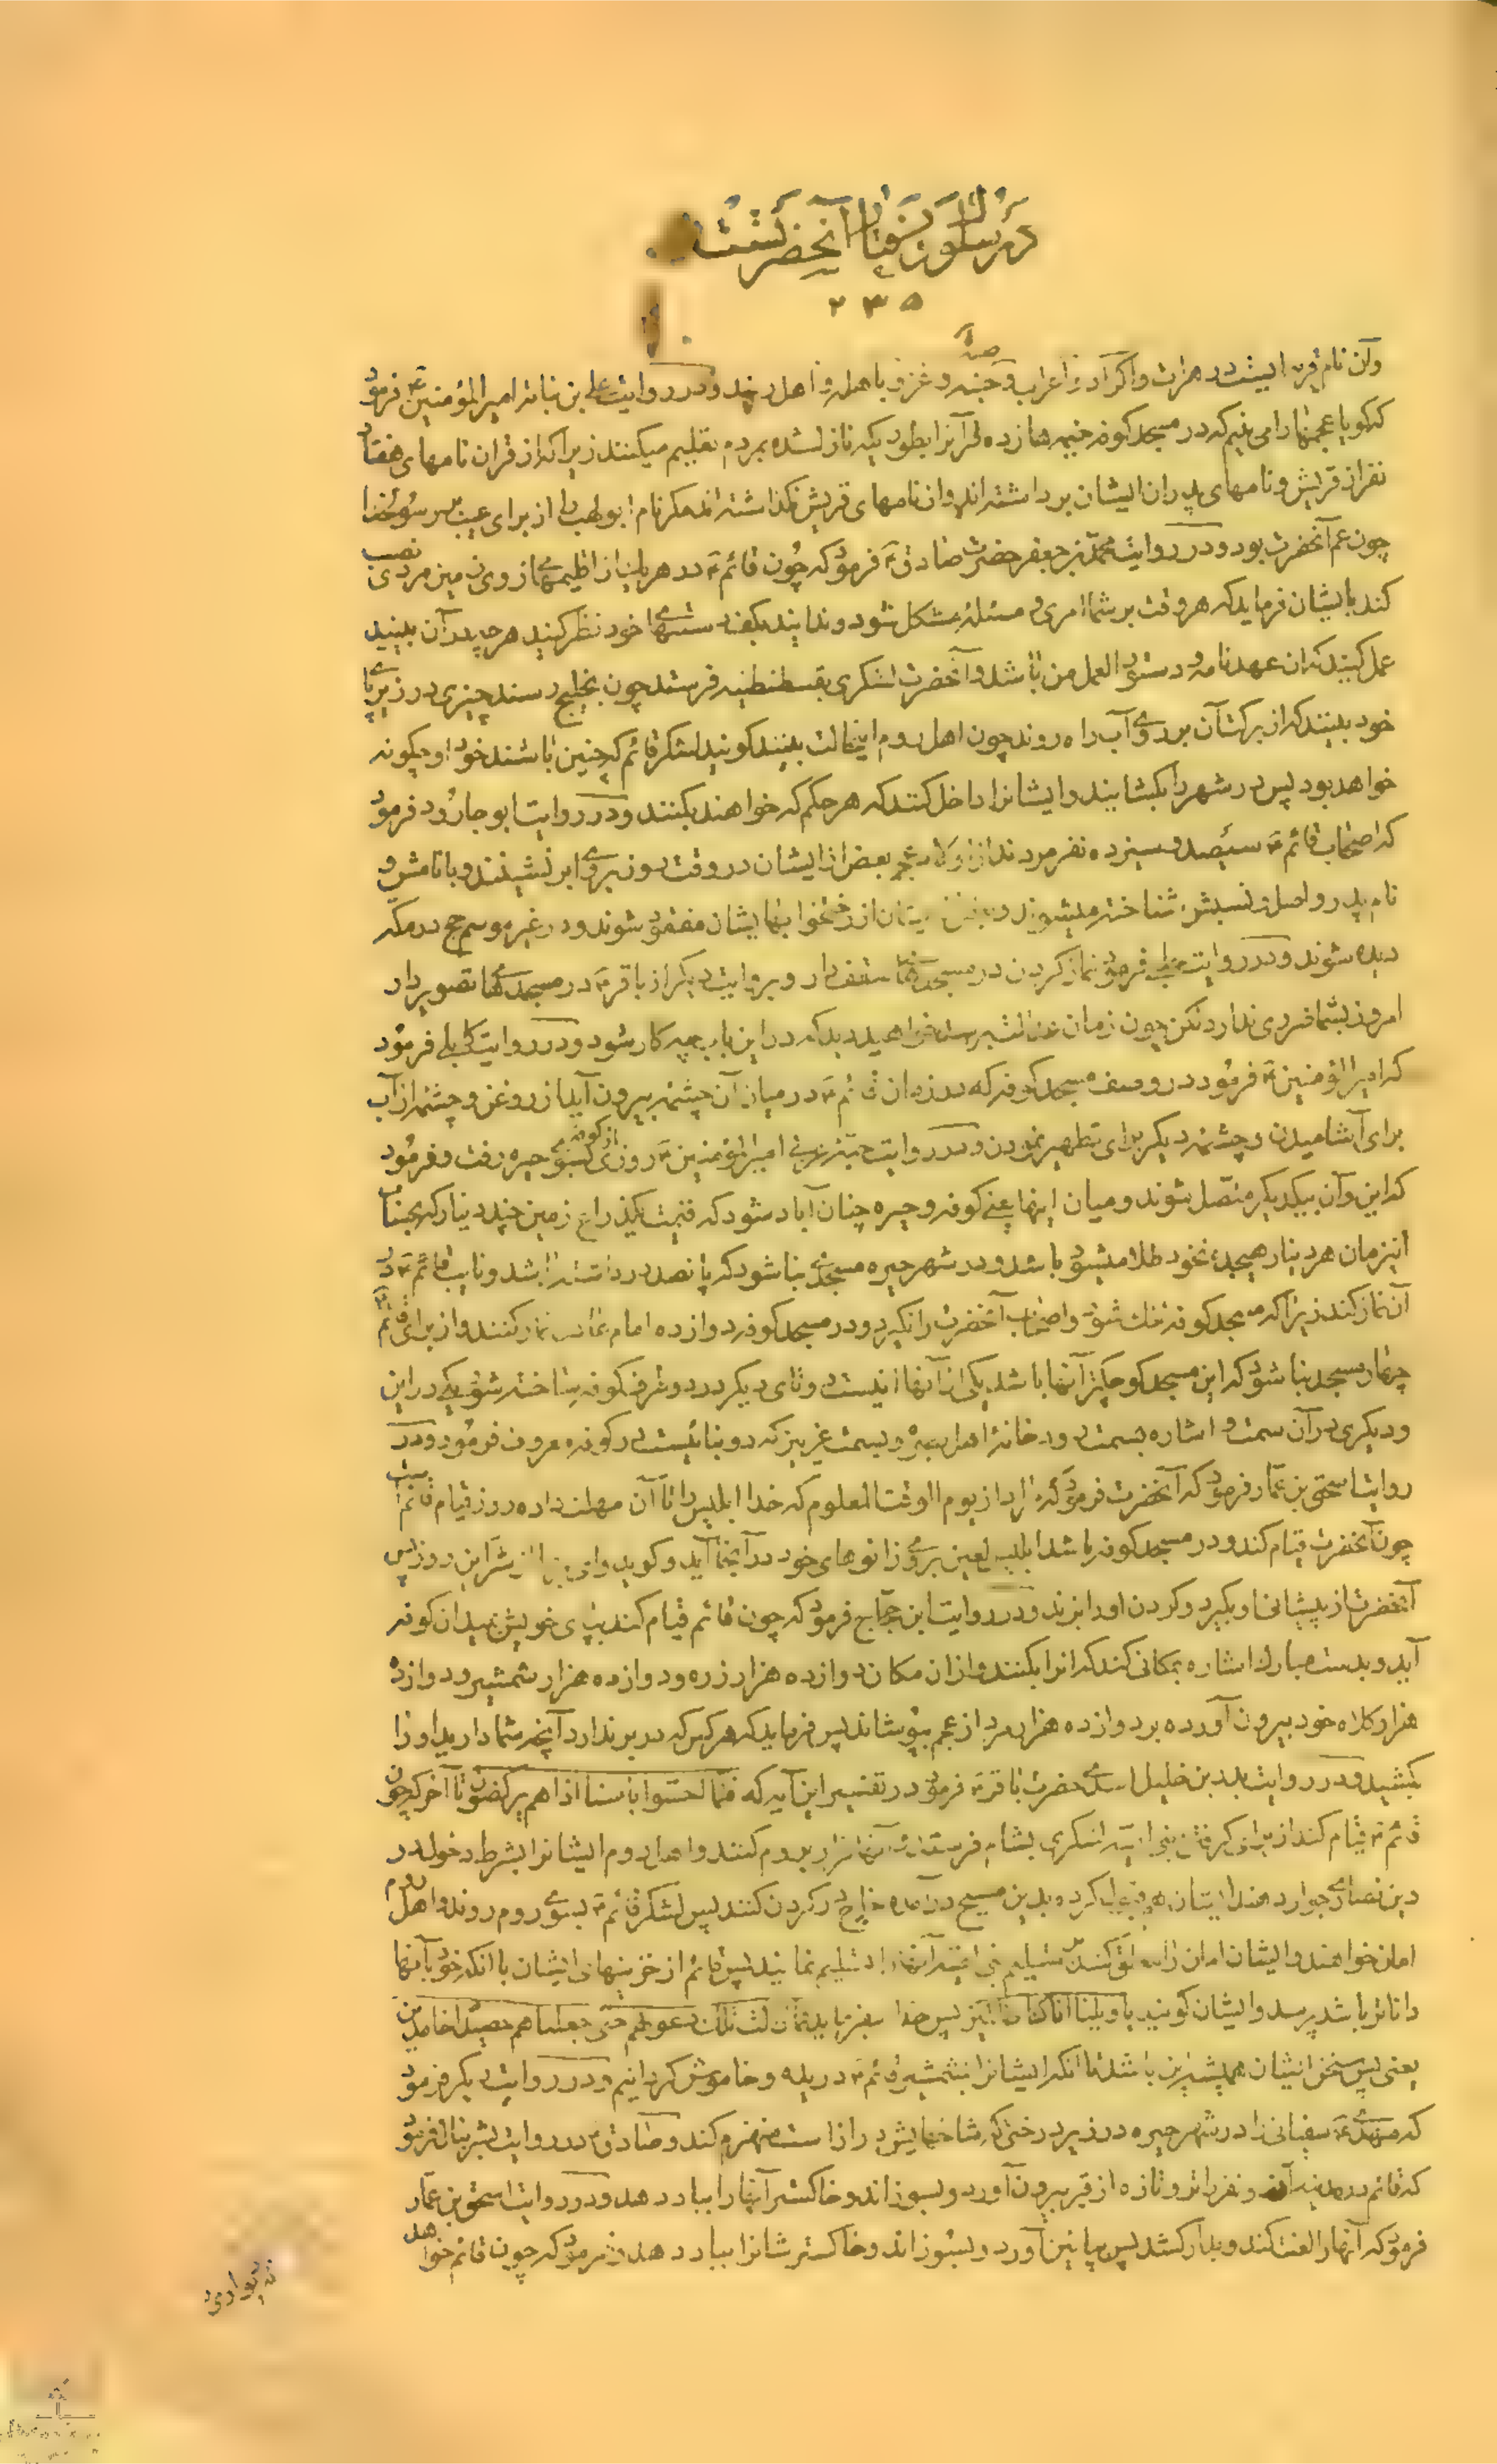 در سلوک و رفتار آنحضرتست
۲۳۵
و آن نام قریه ایست در هرات و اکراد و اعراب و ضبه و غنی و باهله و اهل ری و در روایت علی بن نباته امیرالمؤمنین ع فرمود
که گویا عجمها را می بینم که در مسجد کوفه خیمه ها زده قرآنرا بطوریکه نازلشده بمردم تعلیم میکنند زیرا که از قران نامهای هفتاد
نفر از قریش و نامهای پدران ایشان برداشته اند و از نامهای قریش نگذاشته اند مگر نام ابولهب را از برای عیب بر رسولخدا
چون عم آنحضرت بود و در روایت محمد بن جعفر حضرت صادق ع فرمود که چون قائم ع در هر یک از اقلیمهای روی زمین مردی نصب
کند بایشان فرماید که هر وقت بر شما امری و مسئلهٔ مشکل شود و ندانید بکف دستهای خود نظر کنید هرچه در آن ببینید
عمل کنید که ان عهدنامه و دستور العمل من باشد و آنحضرت لشکری بقسطنطنیه فرستد چون بخلیج رسند چیزی در زیر پای
خود ببینند که از برکت آن بر روی آب راه روند چون اهل روم اینحالت ببینند گویند لشکر قائم که چنین باشند خود او چگونه
خواهد بود پس در شهر را بگشایند و ایشانرا داخل کنند که هر حکم که خواهند بکنند و در روایت ابو جارود فرمود
که اصحاب قائم ع سیصد و سیزده نفر مردند از اولاد عجم بعض از ایشان در وقت روز بر روی ابر نشینند و با نامش و
نام پدر و اصل و نسبش شناخته میشوند و بعضی ایشان از رختخوابهایشان مفقود شوند و در غیر موسم حج در مکه
دیده شوند و در روایت حلبی فرمود نماز کردن در مسجدهای سقف دار و بروایت دیگر از باقر ع در مسجدهای تصویر دار
امروز بشما ضرری ندارد لکن چون زمان عدالت برسد خواهید دید که در این باب چه کار شود و در روایت کابلی فرمود
که امیرالمؤمنین ع فرمود در وسط مسجد کوفه که در زمان قائم ع در میان آن چشمه بیرون آید از روغن و چشمه از آب
برای آشامیدن و چشمه دیگر برای تطهیر نمودن و در روایت حبّه عرنی امیرالمؤمنین ع روزی از کوفه بسوی حیره رفت و فرمود
که این و آن بیکدیگر متصل شوند و میان اینها یعنی کوفه و حیره چنان آباد شود که قیمت یکذراع زمین چند دینار که بحساب
اینزمان هر دینار هیجده نخود طلا میشود باشد و در شهر حیره مسجدی بنا شود که پانصد در داشته باشد و نایب قائم ع در
آن نماز کند زیرا که مسجد کوفه تنک شود و اصحاب آنحضرت را نگیرد و در مسجد کوفه دوازده امام عادل نماز کنند و از برای قائم ع
چهار مسجد بنا شود که این مسجد کوچکتر آنها باشد یکی از آنها اینست و دوتای دیگر در دو طرف کوفه ساخته شود یکی در این
و دیگری در آن سمت و اشاره بسمت رود خانهٔ اهل بصره و بسمت غریین که دو بنائیست در کوفه معروف فرمود و در
روایت اسحق بن عمار فرمود که آنحضرت فرمود که مراد از یوم الوقت المعلوم که خدا ابلیس را تا آن مهلت داده روز قیام قائم است
چون آنحضرت قیام کند و در مسجد کوفه باشد ابلیس لعین بروی زانوهای خود در آنجا آید و گوید وای از شر این روز پس
آنحضرت از پیشانی او بگیرد و گردن او را بزند و در روایت ابن حجاج فرمود که چون قائم قیام کند بپای خویش بمیدان کوفه
آید و بدست مبارک اشاره بمکانی کند که انرا بکنند و از ان مکان دوازده هزار زره و دوازده هزار شمشیر و دوازده
هزار کلاه خود بیرون آورده بر دوازده هزار مرد از عجم بپوشاند پس فرماید که هر کس که در بر ندارد آنچه شما دارید او را
بکشید و در روایت بدر بن خلیل اسدی حضرت باقر ع فرمود در تفسیر این آیه که فلمّا احسّوا باسنا اذا هم یرکضون تا آخر که چون
قائم ع قیام کند از برای گرفتن بنی امیّه لشکری بشام فرستد انها فرار بروم کنند و اهل روم ایشانرا بشرط دخول در
دین نصاری جوار دهند ایشان هم قبول کرده بدین مسیح در آمده خاج در گردن کنند پس لشکر قائم ع بسوی روم روند و اهل روم
امان خواهند و ایشان امان را معلق کنند بر تسلیم بنی امیّه آنها را تسلیم نمایند پس قائم از خزینهای ایشان با آنکه خود بآنها
داناتر باشد پرسد و ایشان گویند یا ویلنا انا کنّا ظالمین پس خدا بفرماید فما زالت تلک دعویهم حتی جعلناهم حصیدا خامدین
یعنی پس سخن ایشان همیشه این باشد تا انکه ایشانرا بشمشیر قائم ع درویده و خاموش گردانیم و در روایت دیگر فرمود
که مهدی ع سفیانی را در شهر حیره در زیر درختی که شاخهایش دراز است منهزم کند و صادق ع در روایت بشر نبال فرمود
که قائم در مدینه آن دو نفر را تر و تازه از قبر بیرون آورد و بسوزاند و خاکستر آنها را بباد دهد و در روایت اسحق بن عمار
فرمود که آنها را لعنت کند و بدار کشد پس پائین آورد و بسوزاند و خاکسترشانرا بباد دهد و فرمود که چون قائم خواهد